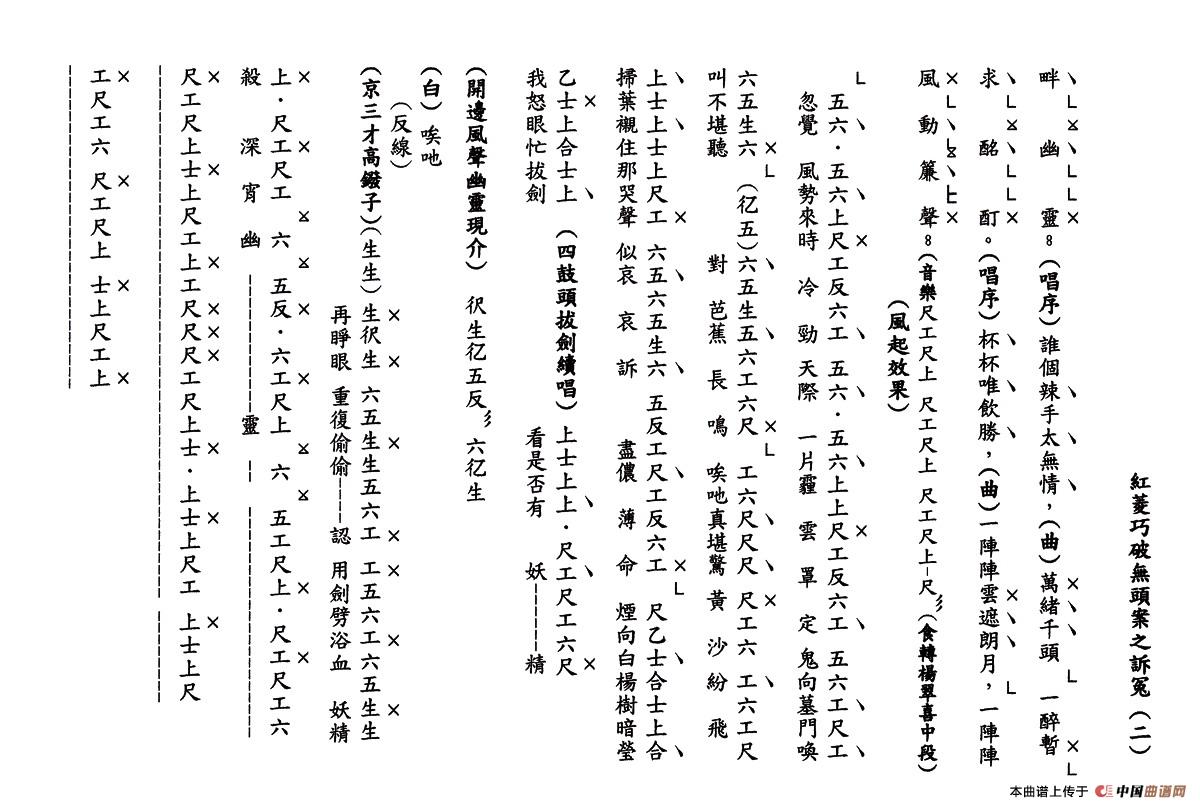 紅菱巧破無頭案之訴冤（二）
畔幽靈。（唱序）誰個辣手太無情，（曲）萬緒千頭一醉暫
求酩酊。（唱序）杯杯唯飲勝，（曲）一陣陣雲遮朗月，一陣陣
風動簾聲。（音樂尺工尺上 尺工尺上 尺工尺上－尺（食轉楊翠喜中段）
（風起效果）
五六·五六上尺工反六工五六·五六上上尺工反六工五六工尺工
忽覺風勢來時冷勁天際一片霾雲罩定鬼向墓門喚
六五生六（伬五）六五生五六工六尺工六尺尺尺尺工六工六工尺
叫不堪聽對芭蕉長鳴唉吔真堪驚黃沙紛飛
上士上士上尺工六五六五生六五反工尺工反六工尺乙士合士上合
掃葉襯住那哭聲似哀哀訴盡儂薄命煙向白楊樹暗瑩
乙士上合士上（四鼓頭拔劍續唱）上士上上·尺工尺工六尺
我怒眼忙拔劍看是否有妖－－－－精
（開邊風聲幽靈現介）伬生伬五反六伬生
（白）唉吔
（反線）
（京三才高鑼子）（生生）生伬生六五生生五六工工五六工六五生生
再睜眼重復偷偷－－－認用劍劈浴血妖精
上·尺工尺工六五反·六工尺上六五工尺上·尺工尺工六
殺深宵幽－－－－－－靈－－－－－－
尺工尺上士上尺工上工尺尺尺工尺上士·上士上尺工上士上尺
工尺工六尺工尺上士上尺工上
本曲谱上传于 中国曲谱网